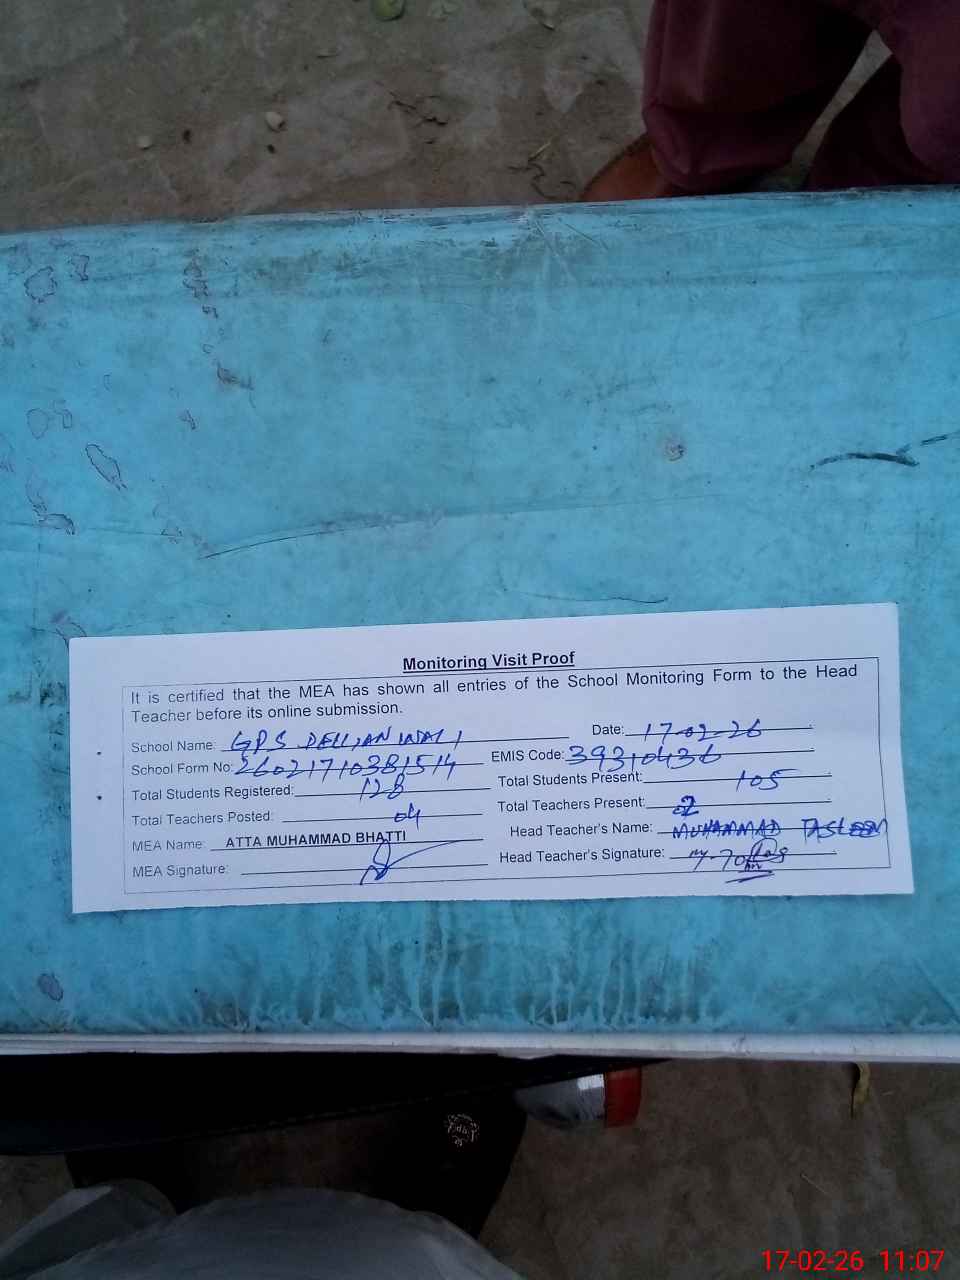 Monitoring Visit Proof
It is certified that the MEA has shown all entries of the School Monitoring Form to the Head
Teacher before its online submission.
School Name: GPS DELLIAN WALI
Date: 17-02-26
School Form No: 26021710381514
EMIS Code: 39310436
Total Students Registered: 128
Total Students Present: 105
Total Teachers Posted: 04
Total Teachers Present: 02
MEA Name: ATTA MUHAMMAD BHATTI
Head Teacher's Name: MUHAMMAD TASLEEM
MEA Signature:
Head Teacher's Signature:
17-02-26 11:07